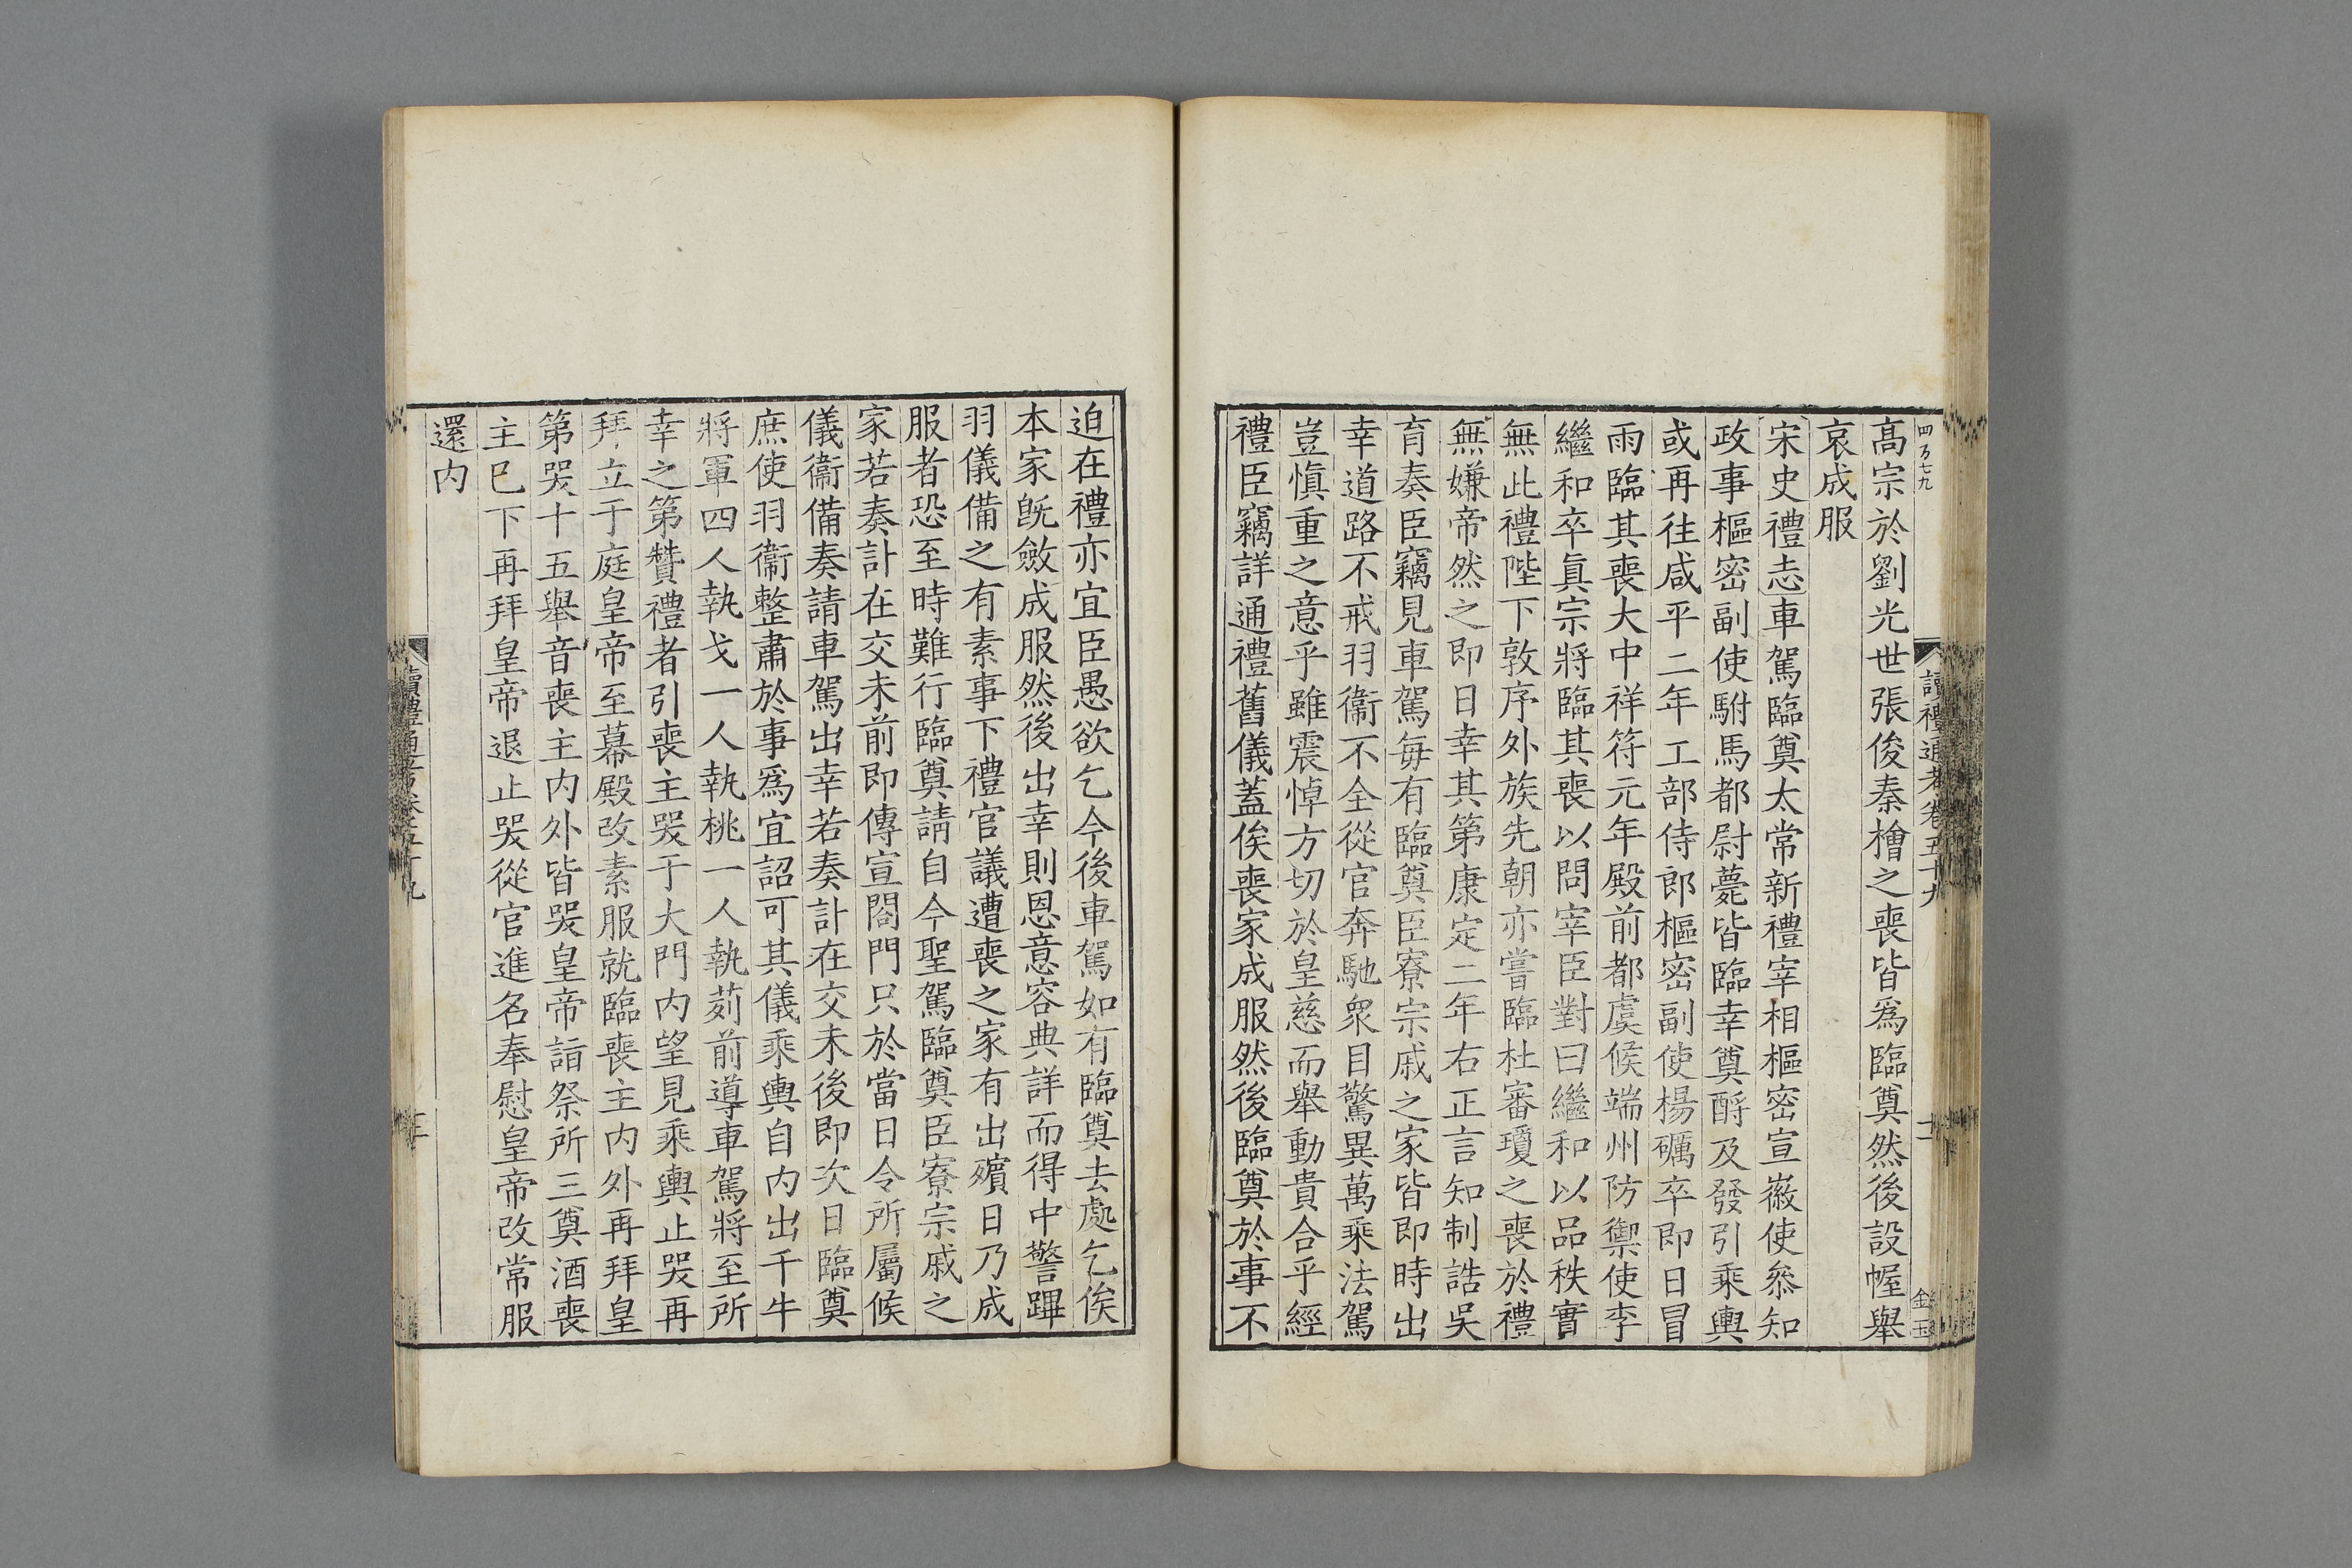 四乃七九
讀禮通考卷五十九
十二
高宗於劉光世張俊秦檜之喪皆爲臨奠然後設幄舉
哀成服
宋史禮志車駕臨奠太常新禮宰相樞密宣徽使叅知
政事樞密副使駙馬都尉薨皆臨幸奠酹及發引乘輿
或再往咸平二年工部侍郎樞密副使楊礪卒即日冒
雨臨其喪大中祥符元年殿前都虞候端州防禦使李
繼和卒眞宗將臨其喪以問宰臣對曰繼和以品秩實
無此禮陛下敦序外族先朝亦嘗臨杜審瓊之喪於禮
無嫌帝然之即日幸其第康定二年右正言知制誥吳
育奏臣竊見車駕每有臨奠臣寮宗戚之家皆即時出
幸道路不戒羽衞不全從官奔馳衆目驚異萬乘法駕
豈愼重之意乎雖震悼方切於皇慈而舉動貴合乎經
禮臣竊詳通禮舊儀蓋俟喪家成服然後臨奠於事不
迫在禮亦宜臣愚欲乞今後車駕如有臨奠去處乞俟
本家旣斂成服然後出幸則恩意容典詳而得中警蹕
羽儀備之有素事下禮官議遭喪之家有出殯日乃成
服者恐至時難行臨奠請自今聖駕臨奠臣寮宗戚之
家若奏訃在交未前即傳宣閤門只於當日令所屬候
儀衞備奏請車駕出幸若奏訃在交未後即次日臨奠
庶使羽衞整肅於事爲宜詔可其儀乘輿自内出千牛
將軍四人執戈一人執桃一人執茢前導車駕將至所
幸之第贊禮者引喪主哭于大門内望見乘輿止哭再
拜立于庭皇帝至幕殿改素服就臨喪主内外再拜皇
第哭十五舉音喪主内外皆哭皇帝詣祭所三奠酒喪
主已下再拜皇帝退止哭從官進名奉慰皇帝改常服
還内